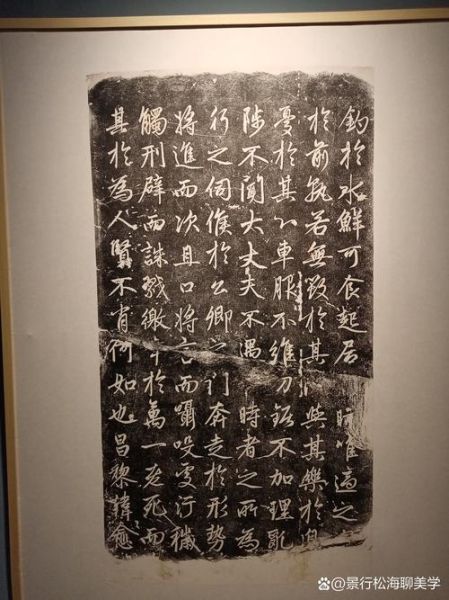 釣於水鮮可食起居時唯適之
於前孰若無毀於其與其樂於身
憂於其心車服不維刀鋸不加理亂
陟不聞大丈夫不遇時者之所為
行之伺候於公卿之门奔走於形勢
將進而次且口將言而囁嚅處汙穢
觸刑辟而誅戮徼幸於萬一老死而
其於為人賢不肖何如也昌黎韓愈
@景行松海聊美学